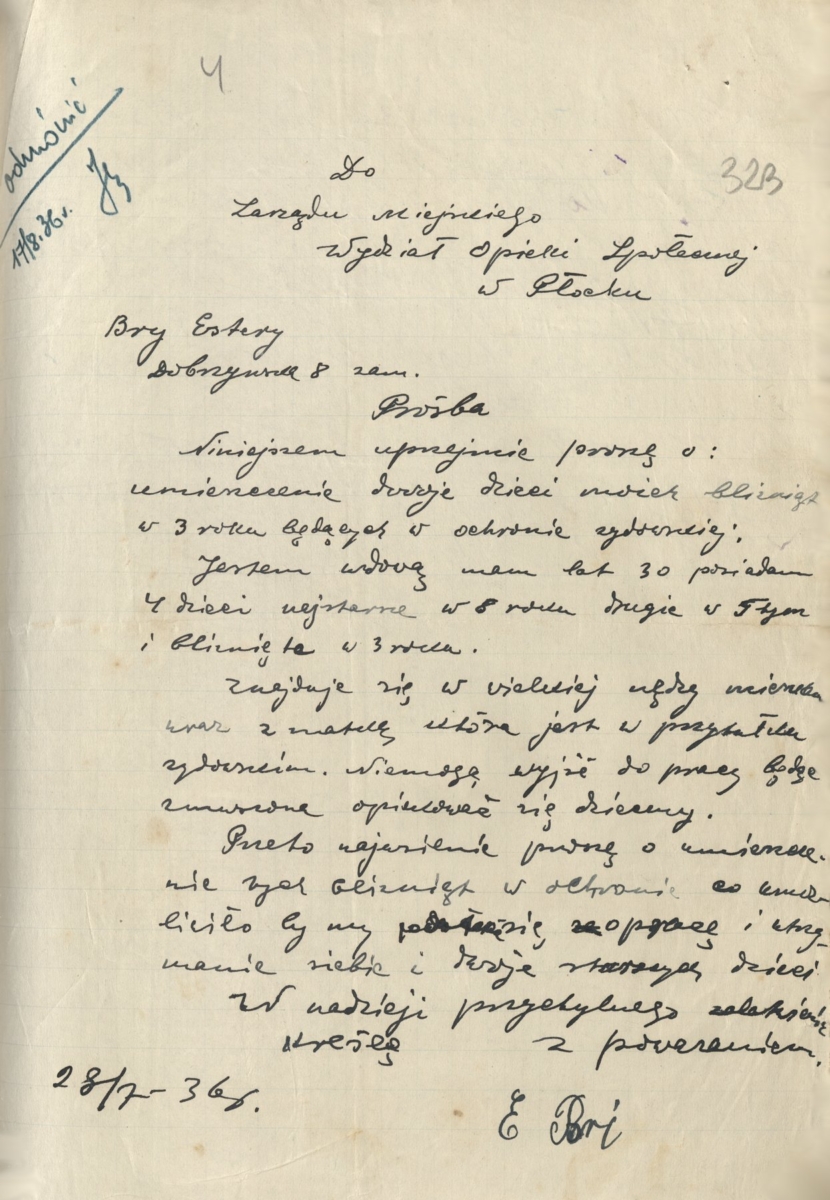 4
odmówić
17/8.36r.
323
Do
Zarządu Miejskiego
Wydział Opieki Społecznej
w Płocku
Bry Estery
Dobrzyńska 8 zam.
Prośba
Niniejszem uprzejmie proszę o:
umieszczenie dwoje dzieci moich bliźniąt
w 3 roku będących w ochronie żydowskiej.
Jestem wdową mam lat 30 posiadam
4 dzieci najstarsze w 8 roku drugie w 5tym
i bliźnięta w 3 roku.
Znajduje się w wielkiej nędzy mieszka
wraz z matką która jest w przytułku
żydowskim. Niemogę wyjść do pracy będąc
zmuszona opiekować się dziecmy.
Przeto najusilnie proszę o umieszcze-
nie tych bliźniąt w ochronie co umoż-
liwiło by my się o pracę i utrzy-
manie siebie i dwoje starszych dzieci
W nadzieji przychylnego załatwienia
kreślę z poważaniem.
28/7 - 36r.
E Bry